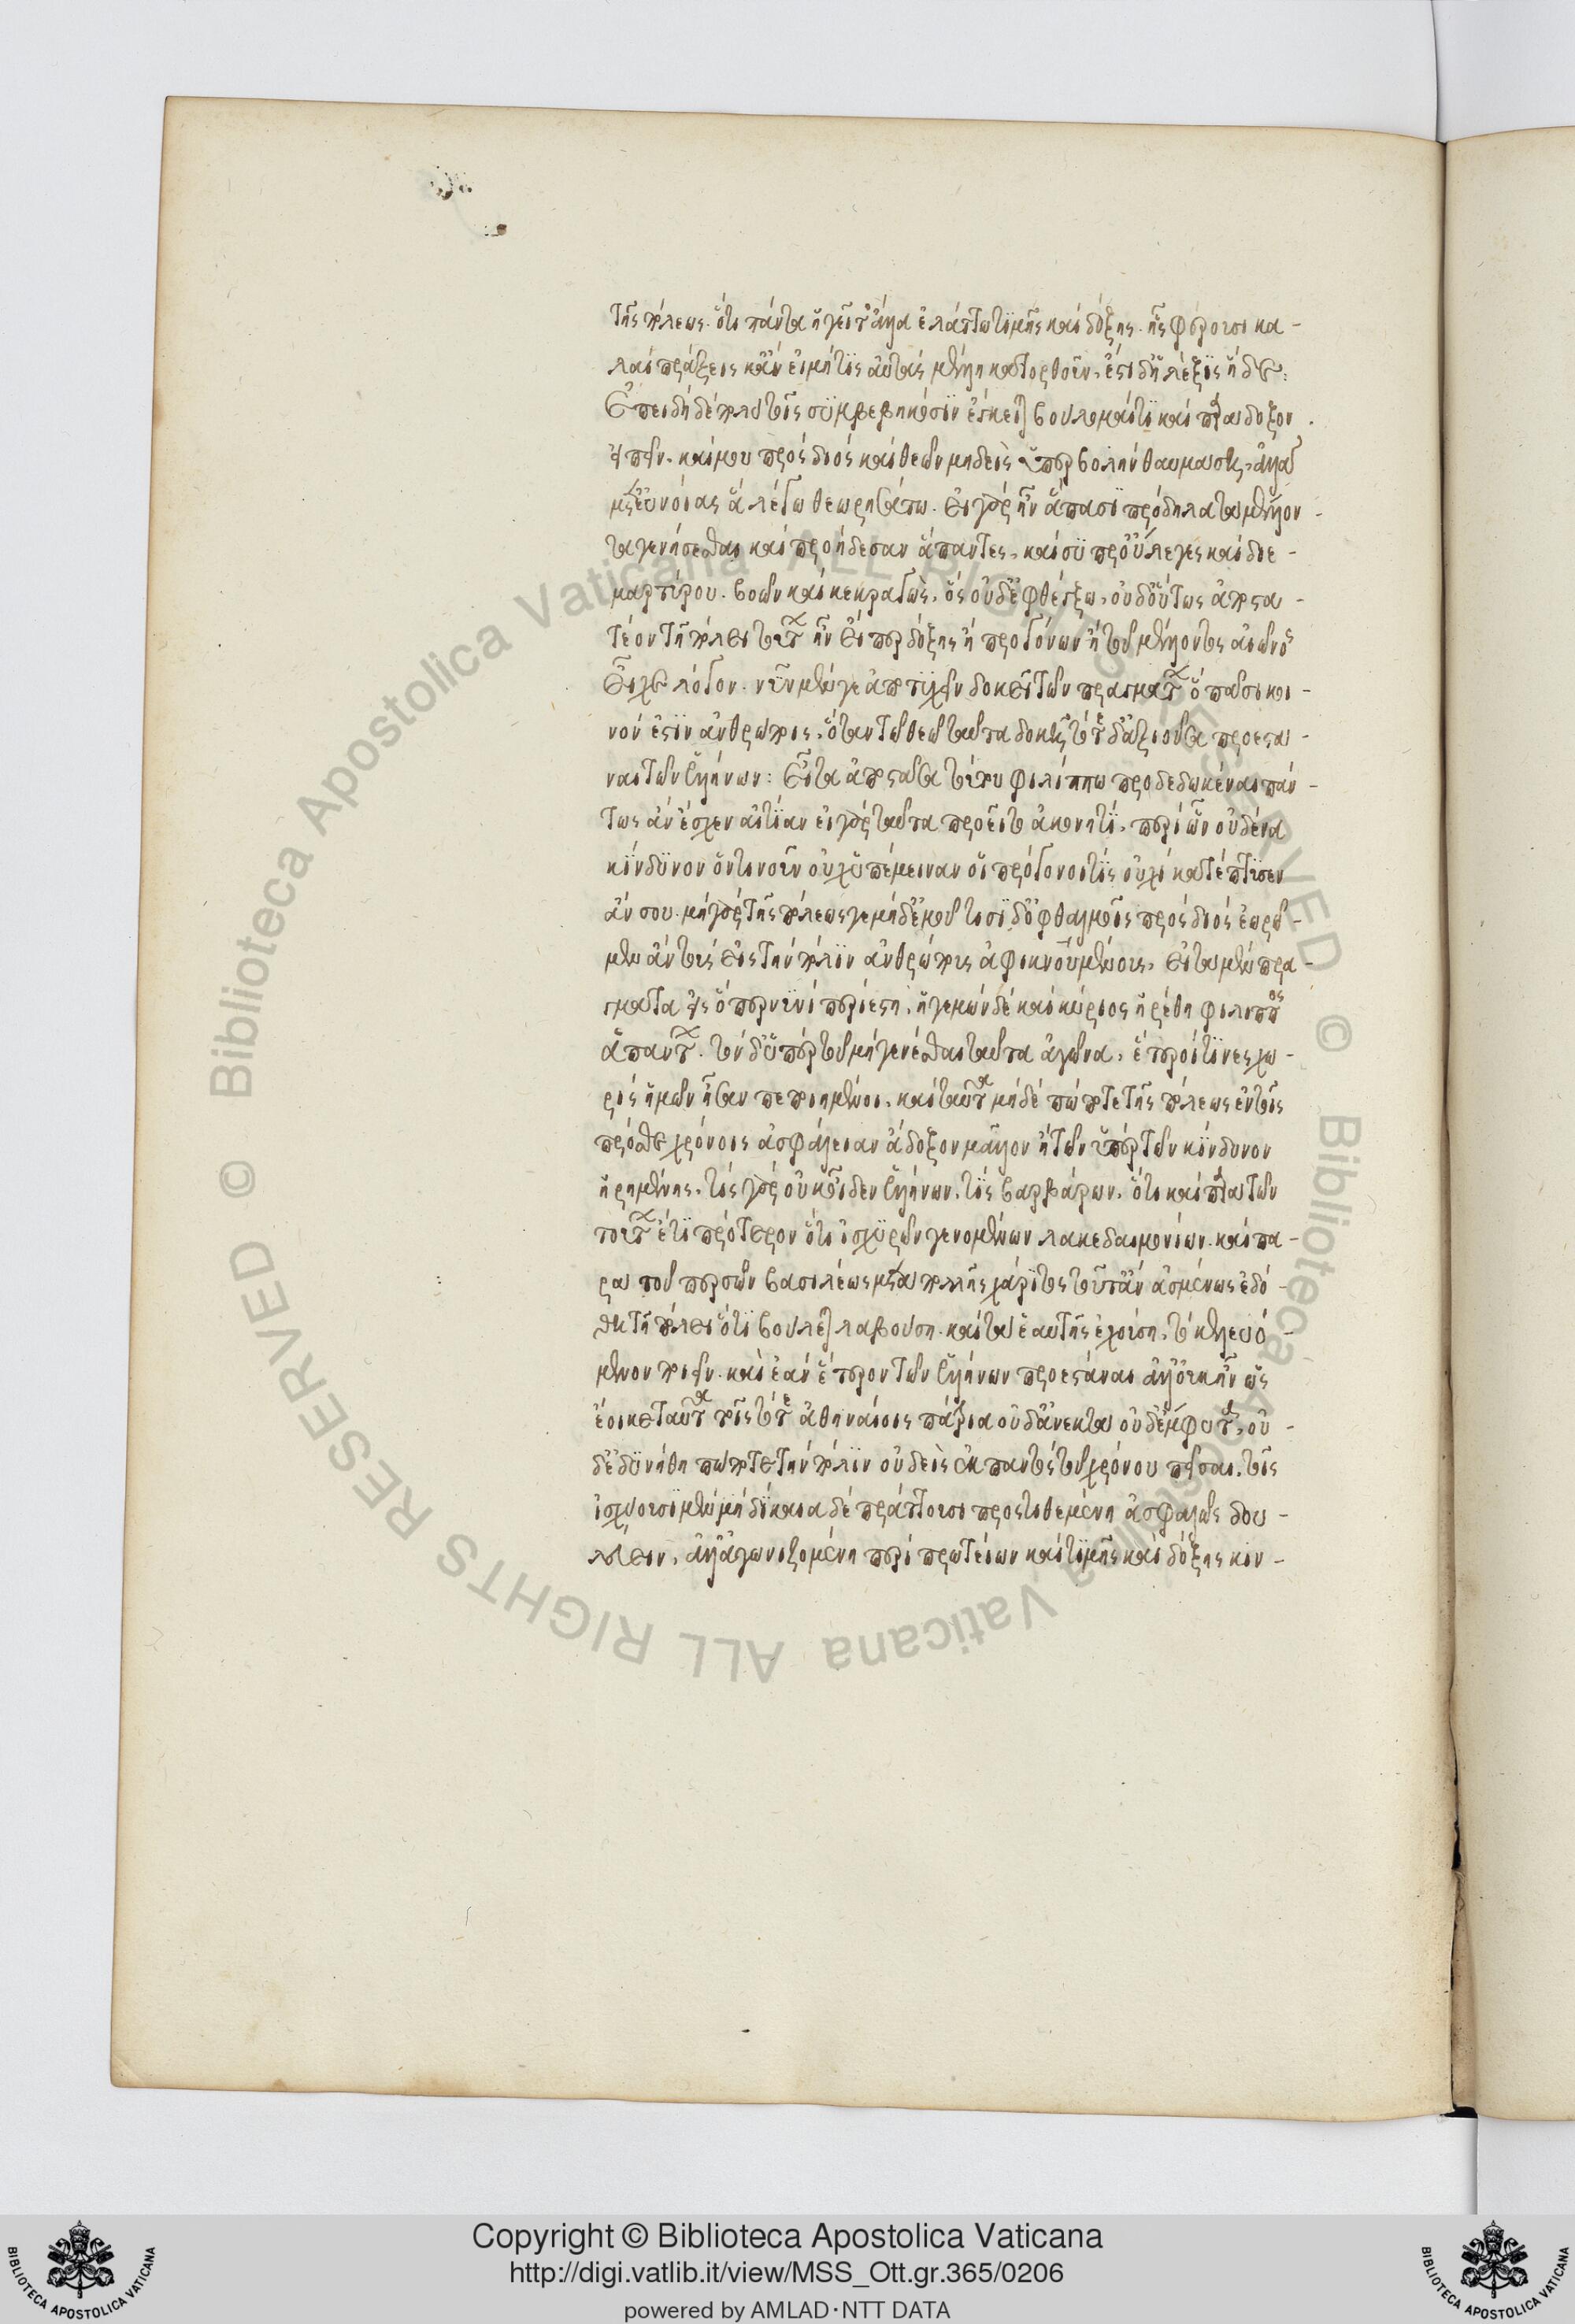 τῆς πόλεως. ὅτι πάντα ἡγεῖτο τἄλλα ἐλάττω τιμῆς καὶ δόξης. ἧς φέρουσι κα-
λαὶ πράξεις κἂν εἰ μή τις αὐτὰς μέλλῃ κατορθοῦν. ἔστι δὴ λέξις ἥδε:
Ἐπειδὴ δὲ πολὺς τοῖς συμβεβηκόσιν ἔγκειται βούλομαί τι καὶ παράδοξον
εἰπεῖν. καί μου πρὸς διὸς καὶ θεῶν μηδεὶς ὑπερβολὴν θαυμάσῃ, ἀλλὰ
μετ' εὐνοίας ὃ λέγω θεωρησάτω. εἰ γὰρ ἦν ἅπασι πρόδηλα τὰ μέλλον-
τα γενήσεσθαι καὶ προῄδεσαν ἅπαντες, καὶ σὺ προύλεγες καὶ διε-
μαρτύρου. βοῶν καὶ κεκραγώς, ὃς οὐδ' ἐφθέγξω, οὐδ' οὕτως ἀποστα-
τέον τῇ πόλει τούτων ἦν εἴπερ δόξης ἢ προγόνων ἢ τοῦ μέλλοντος αἰῶνος
εἶχε λόγον. νῦν μέν γε ἀποτυχεῖν δοκεῖ τῶν πραγμάτων ὃ πᾶσι κοι-
νόν ἐστιν ἀνθρώποις, ὅταν τῷ θεῷ ταῦτα δοκῇ, τότε δ' ἀξιοῦσα προεστά-
ναι τῶν ἑλλήνων: εἶτα ἀποστᾶσα τούτου φιλίππῳ προδεδωκέναι πάν-
τως ἂν ἔσχεν αἰτίαν εἰ γὰρ ταῦτα προεῖτο ἀκονιτί, περὶ ὧν οὐδένα
κίνδυνον ὅντινοῦν οὐχ ὑπέμειναν οἱ πρόγονοι τίς οὐχὶ κατέπτυσεν
ἄν σου. μὴ γὰρ τῆς πόλεώς γε μηδ' ἐμοῦ τίσι δ' ὀφθαλμοῖς πρὸς διὸς ἑωρῶ-
μεν ἂν τοὺς εἰς τὴν πόλιν ἀνθρώπους ἀφικνουμένους, εἰ τὰ μὲν πρά-
γματα εἰς ὅπερ νυνὶ περιέστη, ἡγεμὼν δὲ καὶ κύριος ᾑρέθη φίλιππος
ἁπάντων. τὸν δ' ὑπὲρ τοῦ μὴ γενέσθαι ταῦτα ἀγῶνα, ἕτεροί τινες χω-
ρὶς ἡμῶν ἦσαν πεποιημένοι, καὶ ταῦτα μηδὲ πώποτε τῆς πόλεως ἐν τοῖς
πρόσθε χρόνοις ἀσφάλειαν ἄδοξον μᾶλλον ἢ τῶν ὑπὲρ τῶν κίνδυνον
ᾑρημένης. τίς γὰρ οὐκ οἶδεν ἑλλήνων, τίς βαρβάρων, ὅτι καὶ παρὰ τῶν
τούτων ἔτι πρότερον ὅτι ἰσχυρῶν γενομένων λακεδαιμονίων. καὶ πα-
ρὰ τοῦ περσῶν βασιλέως μετὰ πολλῆς χάριτος τοῦτ' ἂν ἀσμένως ἐδό-
θη τῇ πόλει ὅτι βούλεται λαβούσῃ. καὶ τὰ ἑαυτῆς ἐχούσῃ, τὸ κελευό-
μενον ποιεῖν. καὶ ἐὰν ἕτερον τῶν ἑλλήνων προεστάναι ἀλλ' οὐκ ἦν ὡς
ἔοικε ταῦτα τοῖς τότε ἀθηναίοις πάτρια οὐδ' ἀνεκτὰ οὐδ' ἔμφυτα, οὐ-
δ' ἐδυνήθη πώποτε τὴν πόλιν οὐδεὶς ἐκ παντὸς τοῦ χρόνου πεῖσαι, τοῖς
ἰσχύουσι μὲν μὴ δίκαια δὲ πράττουσι προστιθεμένη ἀσφαλῶς δου-
λεύειν, ἀλλ' ἀγωνιζομένη περὶ πρωτείων καὶ τιμῆς καὶ δόξης κιν-
Copyright © Biblioteca Apostolica Vaticana
http://digi.vatlib.it/view/MSS_Ott.gr.365/0206
powered by AMLAD·NTT DATA
BIBLIOTECA APOSTOLICA VATICANA
BIBLIOTECA APOSTOLICA VATICANA
© Biblioteca Apostolica Vaticana ALL RIGHTS RESERVED © Biblioteca Apostolica Vaticana ALL RIGHTS RESERVED